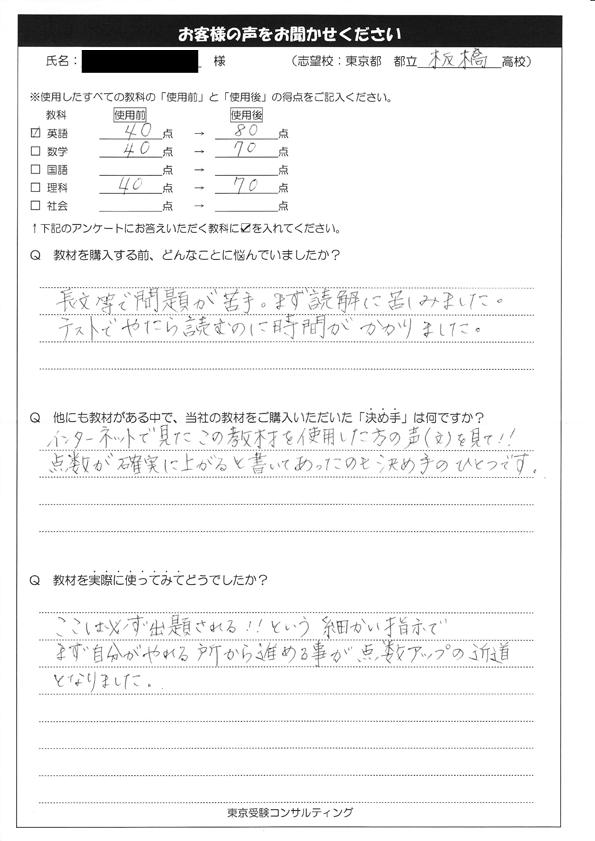 お客様の声をお聞かせください
氏名： 様 （志望校：東京都 都立 板橋 高校）
※使用したすべての教科の「使用前」と「使用後」の得点をご記入ください。
教科 使用前 使用後
☑ 英語 40 点 → 80 点
□ 数学 40 点 → 70 点
□ 国語 点 → 点
□ 理科 40 点 → 70 点
□ 社会 点 → 点
↑下記のアンケートにお答えいただく教科に☑を入れてください。
Q 教材を購入する前、どんなことに悩んでいましたか？
長文等で問題が苦手。まず読解に苦しみました。
テストでやたら読むのに時間がかかりました。
Q 他にも教材がある中で、当社の教材をご購入いただいた「決め手」は何ですか？
インターネットで見たこの教材を使用した方の声（文）を見て！！
点数が確実に上がると書いてあったのも決め手のひとつです。
Q 教材を実際に使ってみてどうでしたか？
ここは必ず出題される！！という細かい指示で
まず自分がやれる所から進める事が点数アップの近道
となりました。
東京受験コンサルティング